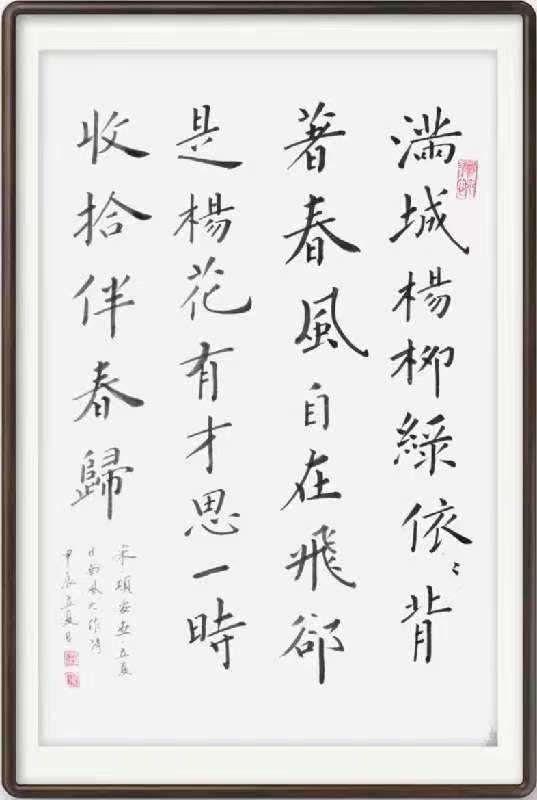 滿城楊柳綠依〻背
著春風自在飛郤
是楊花有才思一時
收拾伴春歸
宋項安世立夏
日南風大作詩
甲辰立夏日